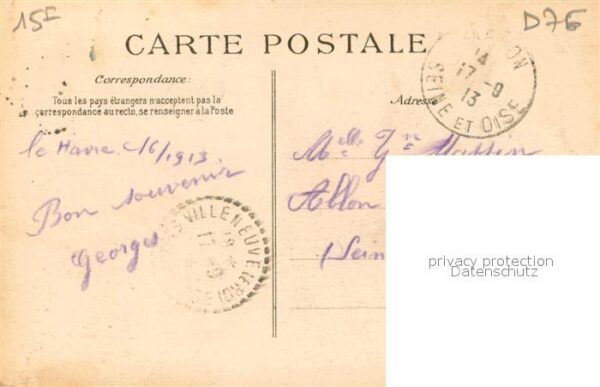 15F
D76
CARTE POSTALE
Correspondance:
Tous les pays étrangers n'acceptent pas la
correspondance au recto, se renseigner à la Poste
Adresse
14
17-9
13
SEINE ET OISE
le Havre 16/1913
Bon souvenir
Georges
VILLENEUVE LE ROI
17
Melle
Ablon
(Sein
privacy protection
Datenschutz